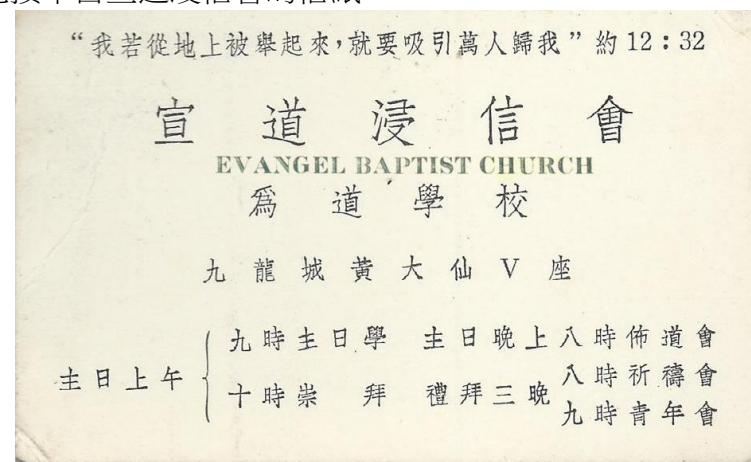 “我若從地上被舉起來，就要吸引萬人歸我”約12：32
宣道浸信會
EVANGEL BAPTIST CHURCH
爲道學校
九龍城黃大仙V座
主日上午
九時主日學
十時崇拜
主日晚上八時佈道會
禮拜三晚
八時祈禱會
九時青年會